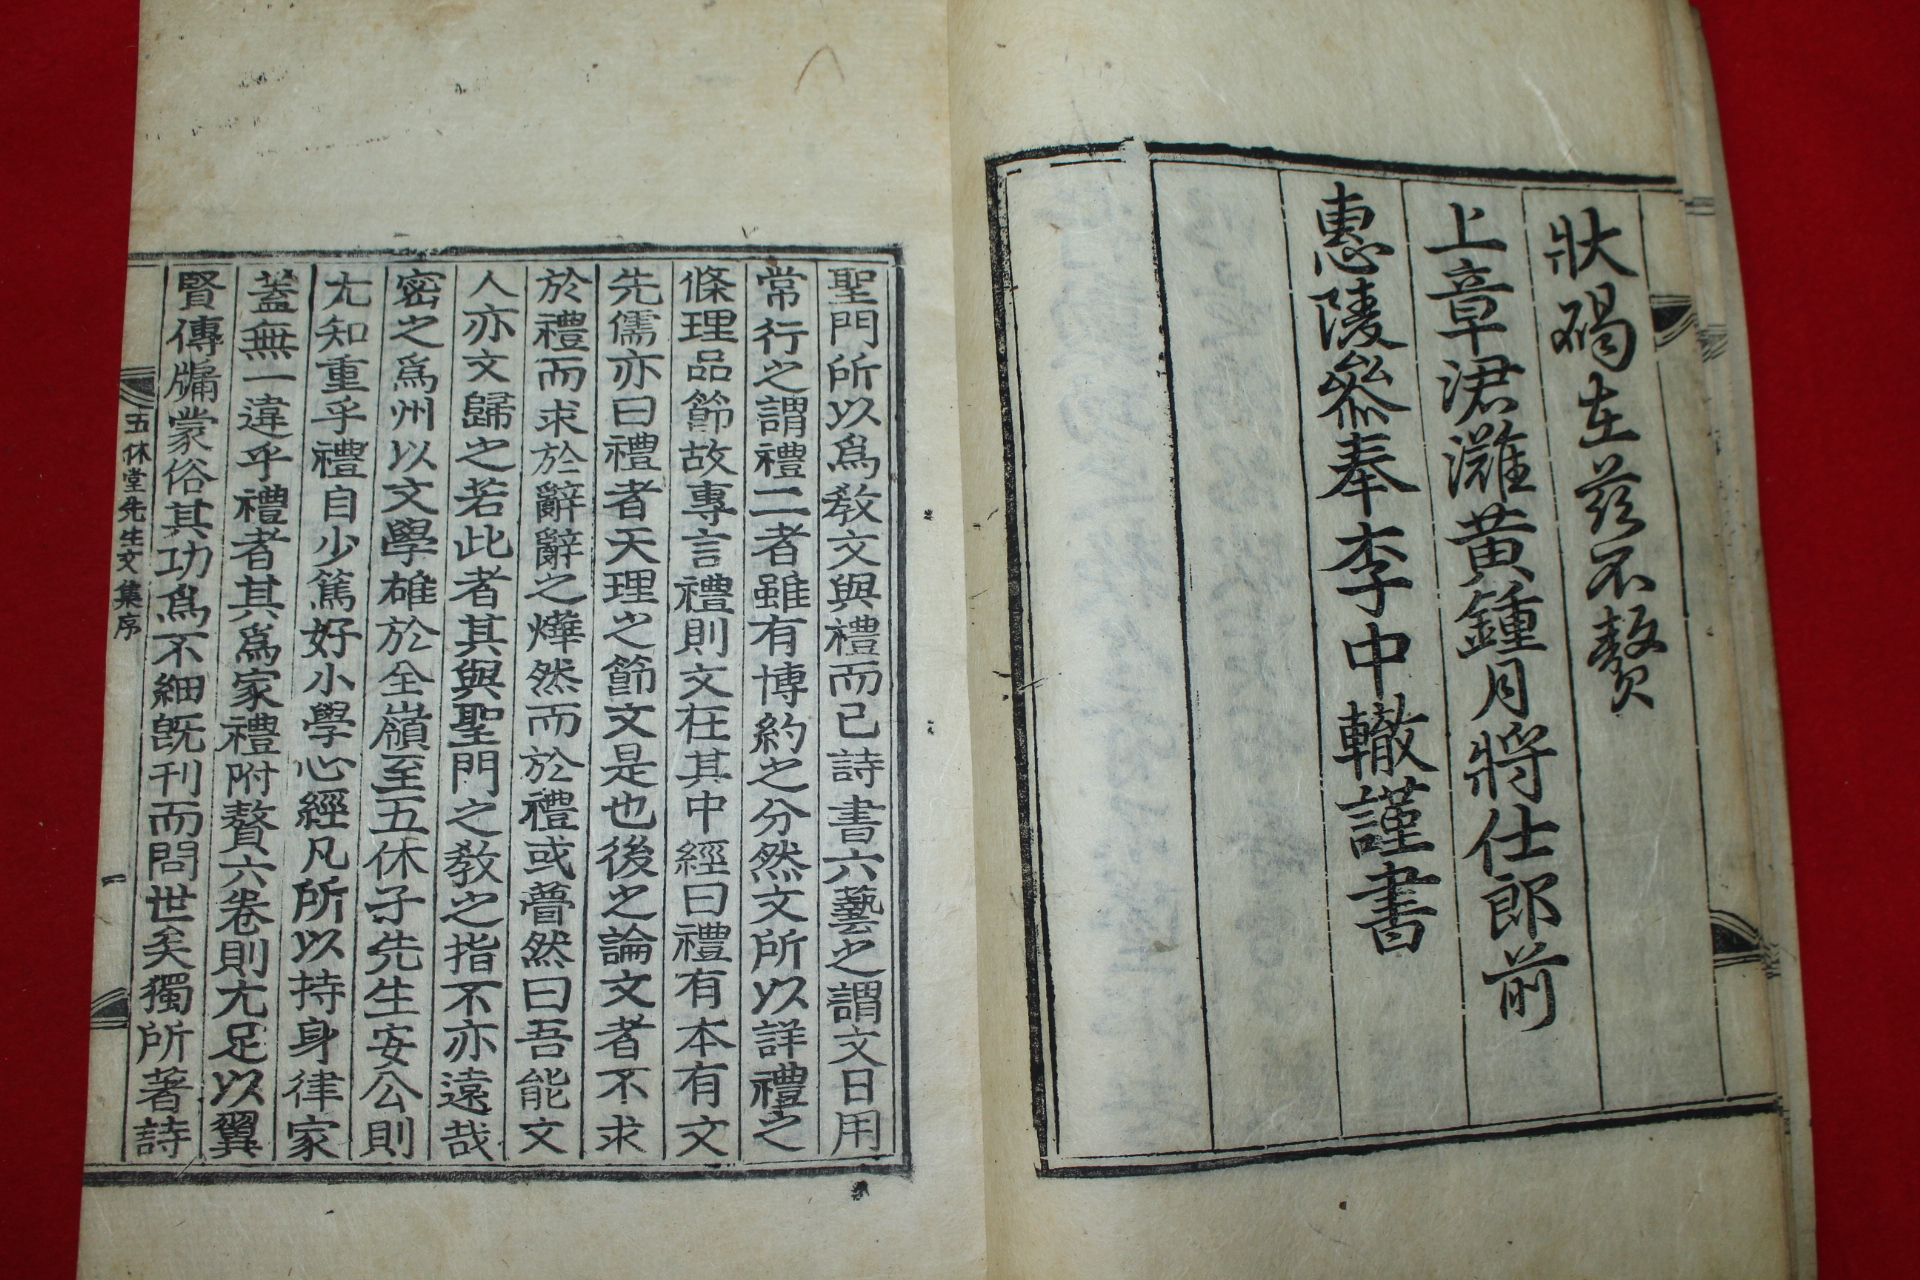 狀碣在玆不贅
上章涒灘黃鍾月將仕郎前
惠陵參奉李中轍謹書
聖門所以爲敎文與禮而已詩書六藝之謂文日用
常行之謂禮二者雖有博約之分然文所以詳禮之
條理品節故專言禮則文在其中經曰禮有本有文
先儒亦曰禮者天理之節文是也後之論文者不求
於禮而求於辭辭之燁然而於禮或瞢然曰吾能文
人亦文歸之若此者其與聖門之敎之指不亦遠哉
密之爲州以文學雄於全嶺至五休子先生安公則
尤知重乎禮自少篤好小學心經凡所以持身律家
蓋無一違乎禮者其爲家禮附贅六卷則尤足以翼
賢傳牖蒙俗其功爲不細旣刊而問世矣獨所著詩
五休堂先生文集序
一